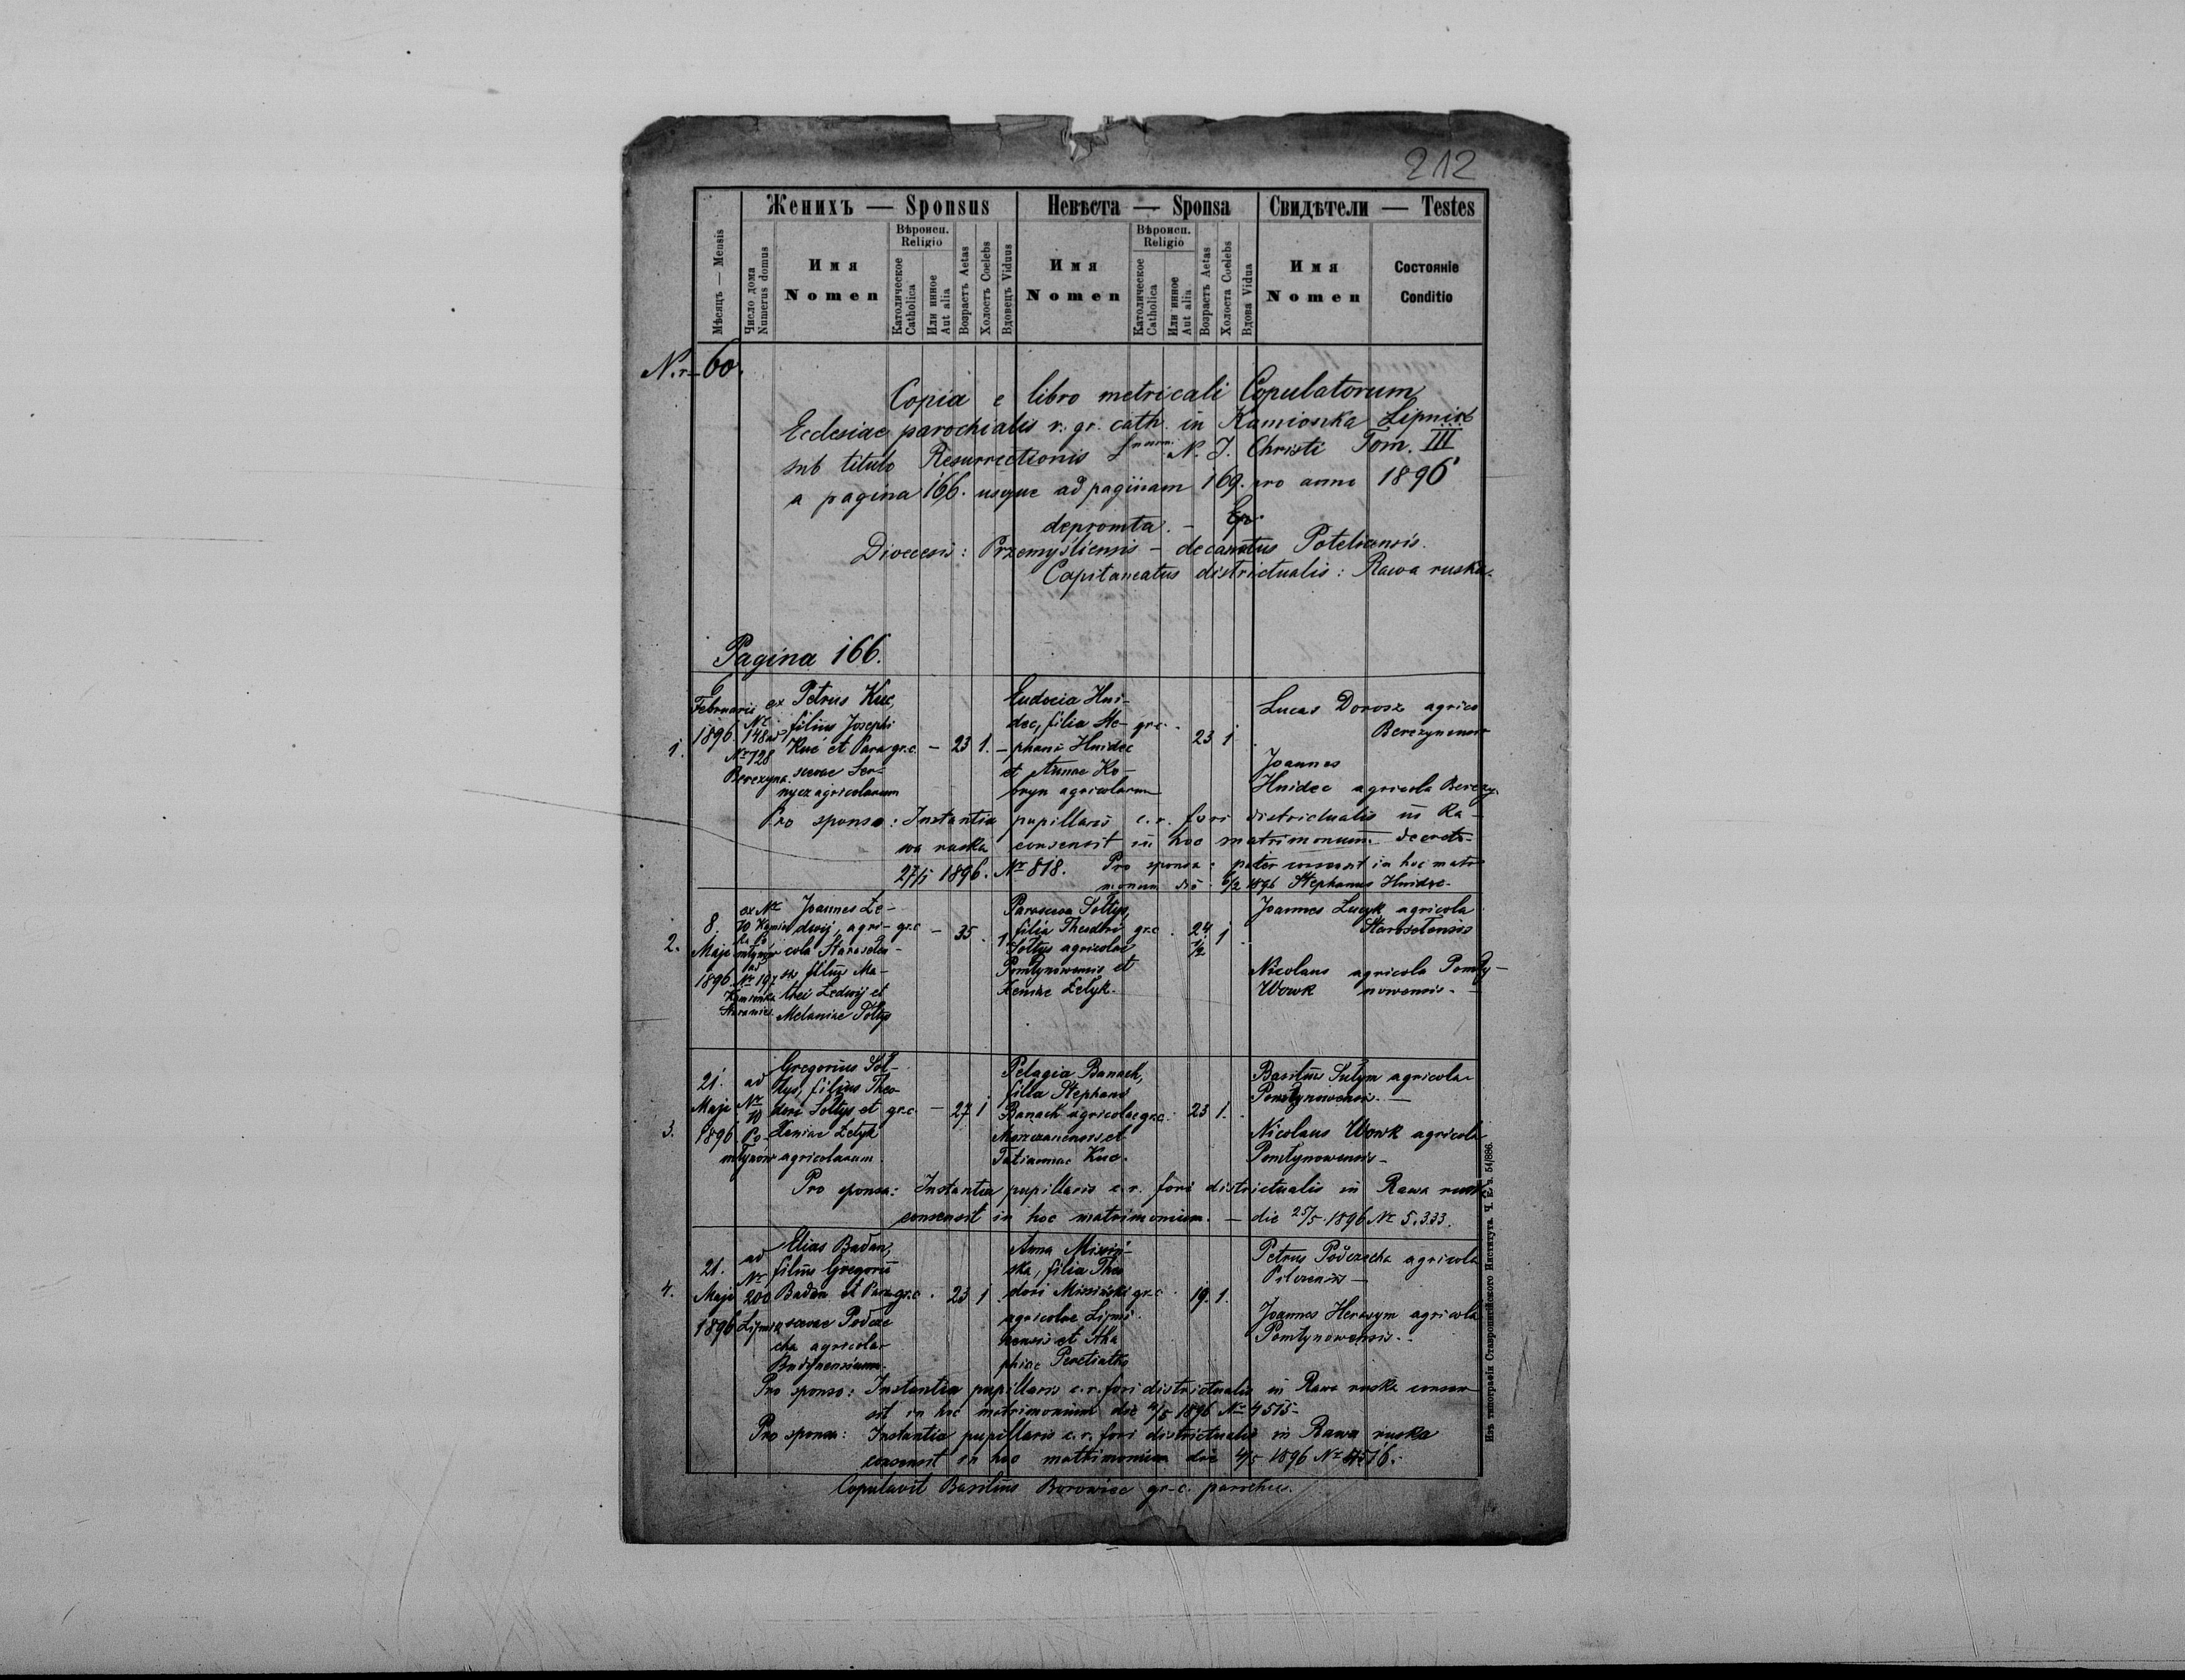 212
Женихъ — Sponsus
Невѣста — Sponsa
Свидѣтели — Testes
Мѣсяцъ — Mensis
Число дома
Numerus domus
Имя
Nomen
Вѣроисп.
Religio
Католическое
Catholica
Или инное
Aut alia
Возрастъ Aetas
Холостъ Coelebs
Вдовецъ Viduus
Имя
Nomen
Вѣроисп.
Religio
Католическое
Catholica
Или инное
Aut alia
Возрастъ Aetas
Холоста Coelebs
Вдова Vidua
Имя
Nomen
Состояніе
Conditio
N.r 60.
Copia e libro metricali Copulatorum
Ecclesiae parochialis r. gr. cath. in Kamionka Lipnik
sub titulo Resurrectionis N. J. Christi Tom. III
a pagina 166. usque ad paginam 169. pro anno 1896
depromta. -
Dioecesis: Przemysliensis - decanatus Potelicensis.
Capitaneatus districtualis: Rawa ruska.
Pagina 166.
1.
6
Februarii
1896.
ex
Nr
148 ad
Nr 128
Berezyna.
Petrus Kuc,
filius Josephi
Kuc et Para-
scevae Ser-
nycz agricolarum
gr.c. - 23 1. -
Eudocia Hni-
dec, filia Ste-
phani Hnidec
et Annae Ko-
bryn agricolarum
gr.c. 23 1
Lucas Dorosz agrico
Berezynensis
Joannes
Hnidec agricola Berezy-
Pro sponso: Instantia pupillaris c.r. fori districtualis in Ra-
wa ruska consensit in hoc matrimonium decreto
27/1 1896. Nr 818. Pro sponsa: pater consensit in hoc matri
monium die 6/2 1896 Stephanus Hnidec-
2.
8.
Maji
1896
ex Nr
10
ad
Nr 197
Kamionka
Joannes Le-
dwij, agri-
cola Starosiel-
filius Ma-
thei Ledwij et
Melaniae Soltys
gr.c - 35 . 1
Parascewa Soltys,
filia Theodori
Soltys agricolae
Pomlynowensis et
Xeniae Zelyk.
gr.c . 24 1/2 1
Joannes Lucyk agricola
Starosielensis
Nicolaus agricola Pomly-
Wowk nowensis. -
3.
21.
Maji
1896
ad
Nr
10
Po-
mlynow
Gregorius Sol-
tys, filius Theo
dori Soltys et
Xeniae Zelyk
agricolarum.
gr.c - 27 1
Pelagia Banach,
filia Stephani
Banach agricolae
et
Tatiannae Kuc.
gr.c. 23 1.
Basilius Sulym agricola
Pomlynowensis. -
Nicolaus Wowk agricola
Pomlynowensis-
Pro sponsa: Instantia pupillaris c.r. fori districtualis in Rawa ruska
consensit in hoc matrimonium. - die 25/5 1896 Nr 5.333.
4.
21.
Maji
1896
ad
Nr
200
Lipnik
Elias Badan,
filius Gregorii
Badan et Para-
scevae Podcze
cha agricola-
gr.c . 23 1
Anna Misiń-
ska, filia Theo
dori Misiński
agricolae Lipni
censis et Aha
phiae Peretiatko
gr.c. . 19. 1.
Petrus Podczecha agricola
Joannes Herasym agricola
Pomlynowensis.-
Pro sponso: Instantia pupillaris c.r. fori districtualis in Rawa ruska consen
sit in hoc matrimonium die 4/5 1896 Nr 4515-
Pro sponsa: Instantia pupillaris c.r. fori districtualis in Rawa ruska
consensit in hoc matrimonium die 4/5 1896 Nr 4516.
Copulavit Basilius Borowiec gr.-c. parochus.
Изъ типографіи Ставропигійского Института. Ч. 54/886.